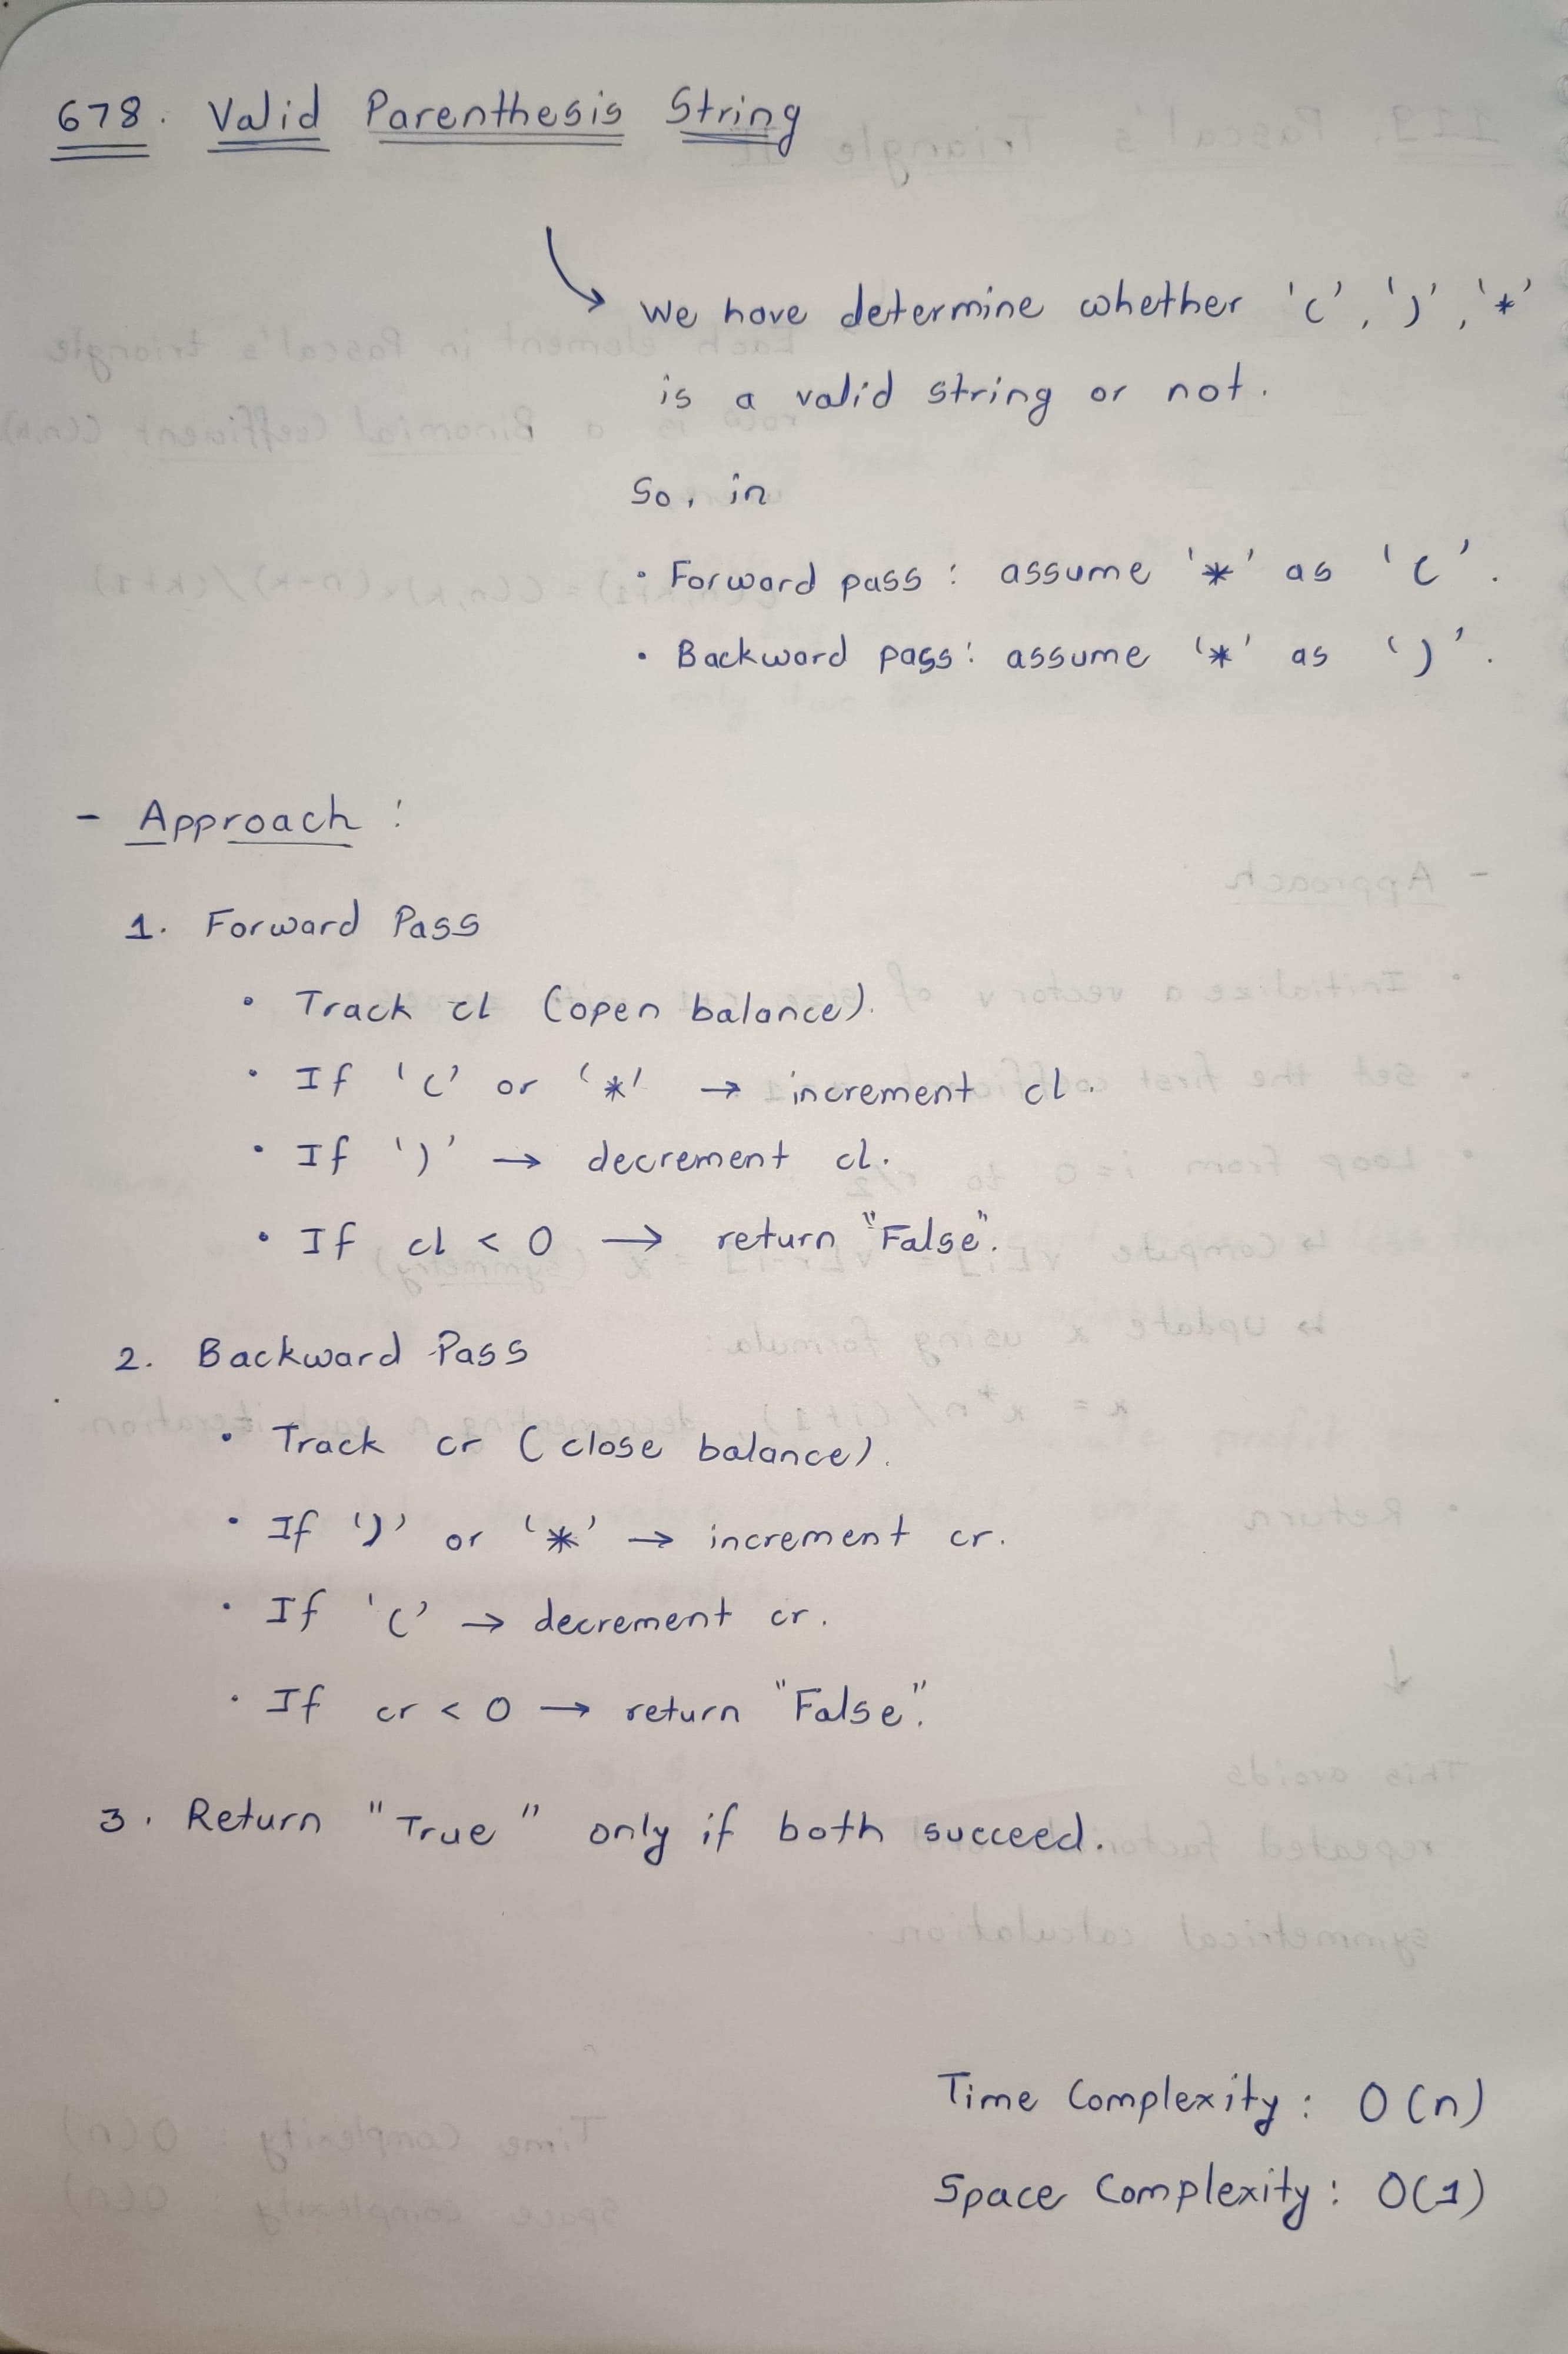 678. Valid Parenthesis String
We have determine whether '(', ')', '*'
is a valid string or not.
So, in
• Forward pass: assume '*' as '('.
• Backward pass: assume '*' as ')'.
- Approach:
1. Forward Pass
• Track cl (open balance).
• If '(' or '*' → increment cl.
• If ')' → decrement cl.
• If cl < 0 → return "False".
2. Backward Pass
• Track cr (close balance).
• If ')' or '*' → increment cr.
• If '(' → decrement cr.
• If cr < 0 → return "False".
3. Return "True" only if both succeed.
Time Complexity: O(n)
Space Complexity: O(1)